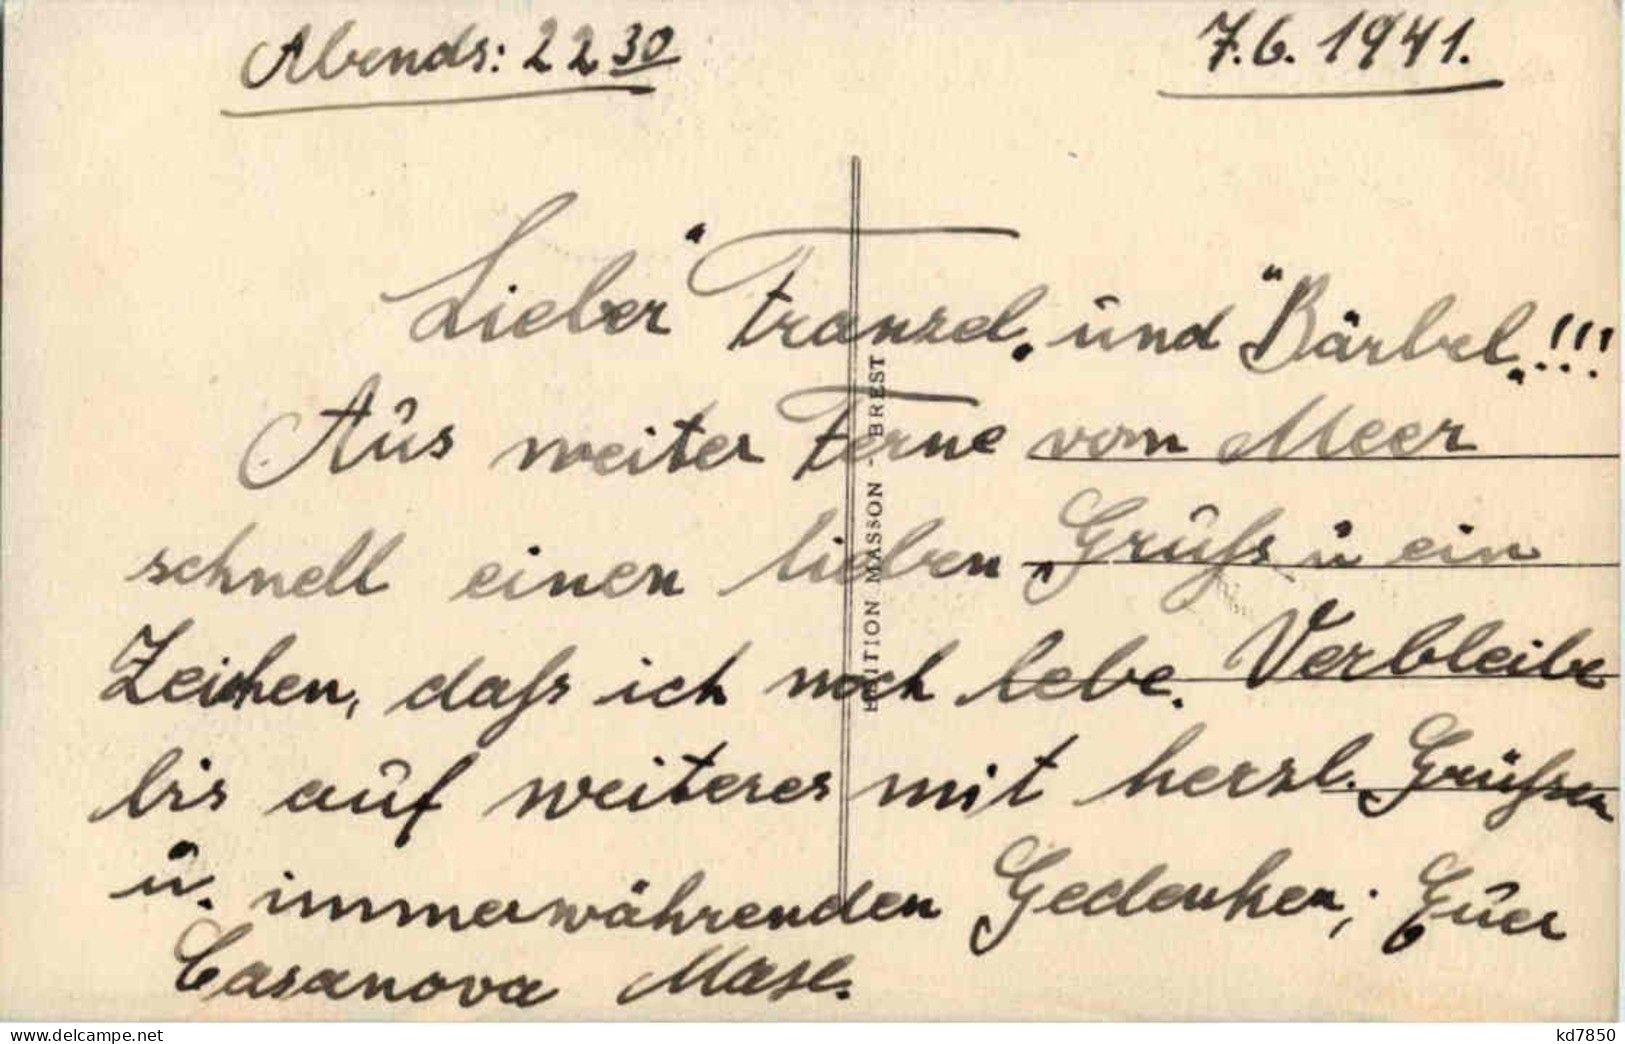 Abends: 22 30
7.6.1941.
Lieber "Franzel" und "Bärbel"!!!
Aus weiter Ferne vom Meer
schnell einen lieben Gruß u ein
Zeichen, daß ich noch lebe. Verbleibe
bis auf weiteres mit herzl. Grüßen
u. immerwährenden Gedenken; Euer
Casanova Masl.
EDITION MASSON - BREST
delcampe.net
kd7850